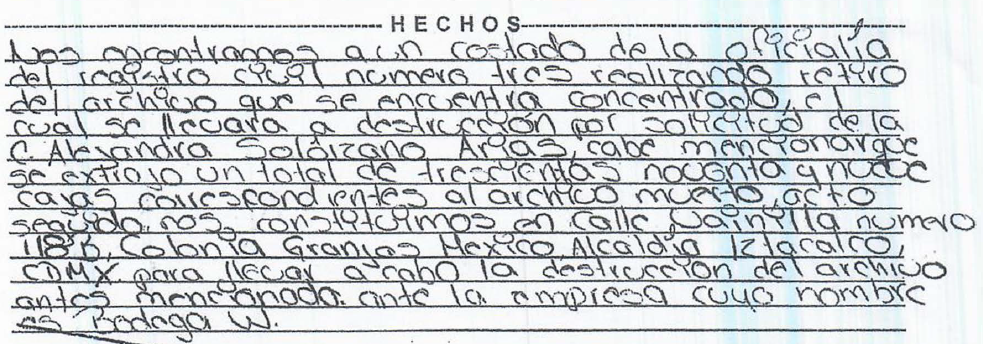 HECHOS
Nos encontramos a un costado de la oficialía
del registro civil numero tres realizando retiro
del archivo que se encuentra concentrado, el
cual se llevara a destrucción por solicitud de la
C. Alejandra Solórzano Arias, cabe mencionar que
se extrajo un total de trescientas noventa y nueve
cajas correspondientes al archivo muerto, acto
seguido, nos constituimos en Calle Vainilla numero
118 B, Colonia Granjas Mexico, Alcaldia Iztacalco,
CDMX para llevar a cabo la destrucción del archivo
antes mencionado. ante la empresa cuyo nombre
es Bodega W.